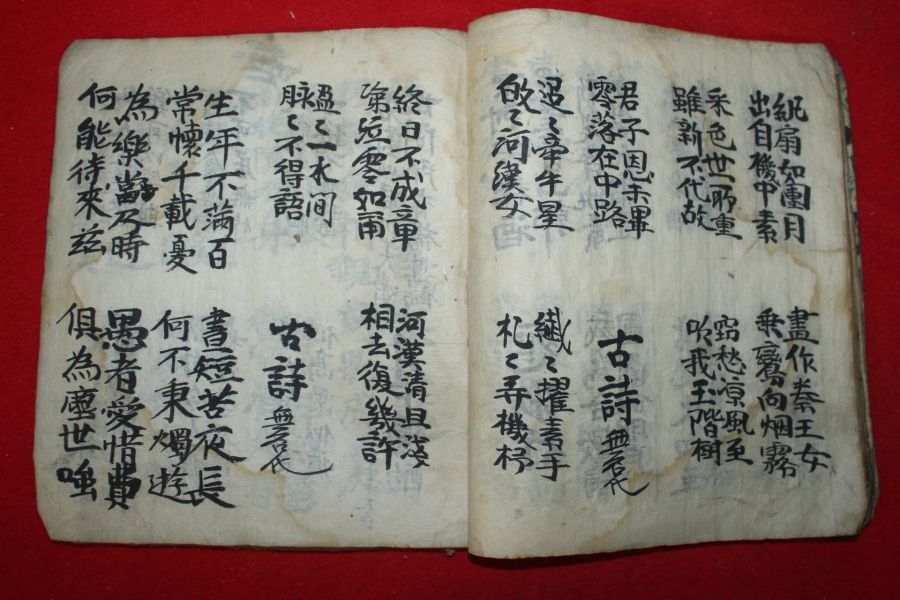 紈扇如團月
出自機中素
畫作秦王女
乘鸞向烟霧
采色世所重
雖新不代故
窃愁凉風至
吹我玉階樹
君子恩未畢
零落在中路
古詩 無名氏
迢〻牽牛星
皎〻河漢女
纖〻擢素手
札〻弄機杼
終日不成章
涕泣零如雨
河漢清且淺
相去復幾許
盈〻一水間
脉〻不得語
古詩 無名氏
生年不滿百
常懷千載憂
晝短苦夜長
何不秉燭遊
為樂當及時
何能待來兹
愚者愛惜費
俱為塵世嗤